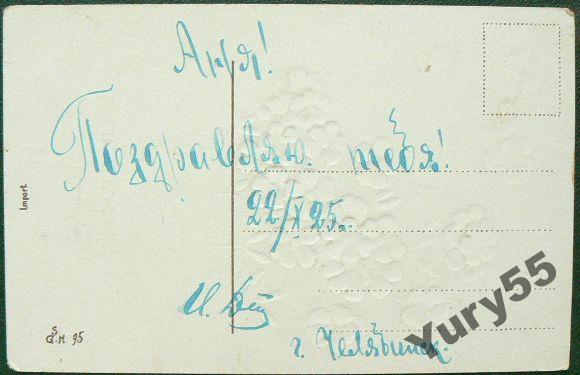 Аня!
Поздравляю тебя!
22/X 25.
И.
г. Челябинск.
Import
G.S.H. 95
Yury55